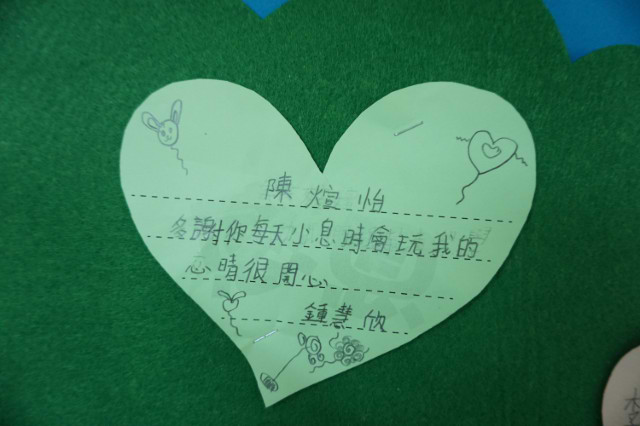 陳煊怡
多謝你每天小息時會玩我的
忍晴很開心
鍾慧欣